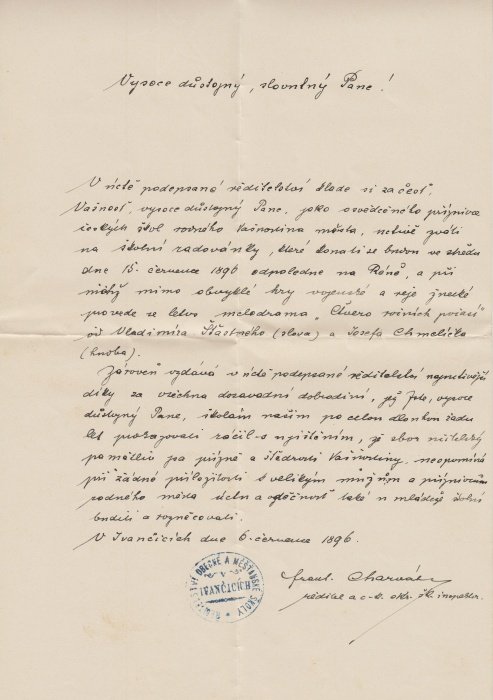 Vysoce důstojný, slovutný Pane!
V úctě podepsaná ředitelství klade si za čest,
Vašnost, vysoce důstojný Pane, jako osvědčeného příznivce
českých škol rodného Vašnostina města, uctivě zváti
na školní radovánky, které konati se budou ve středu
dne 15. července 1896 odpoledne na Réně, a při
nichž mimo obvyklé hry vojenské a reje žnecké
provede se letos melodrama „Čtvero ročních počasí"
od Vladimíra Šťastného (slova) a Josefa Chmelíčka
(hudba).
Zároveň vzdává v úctě podepsané ředitelství nejuctivější
díky za všechna dosavadní dobrodiní, jež jste, vysoce
důstojný Pane, školám našim po celou dlouhou řadu
let prokazovati ráčil s ujištěním, že sbor učitelský
pamětliv jsa přízně a štědrosti Vašnostiny, neopomíná
při žádné příležitosti k velikým mužům a příznivcům
rodného města úctu a vděčnost také u mládeže školní
buditi a rozněcovati.
V Ivančicích dne 6. července 1896.
ŘEDITELSTVÍ OBECNÉ A MĚŠŤANSKÉ ŠKOLY
V
IVANČICÍCH
Frant. Charvát
ředitel a c. k. okr. šk. inspektor.